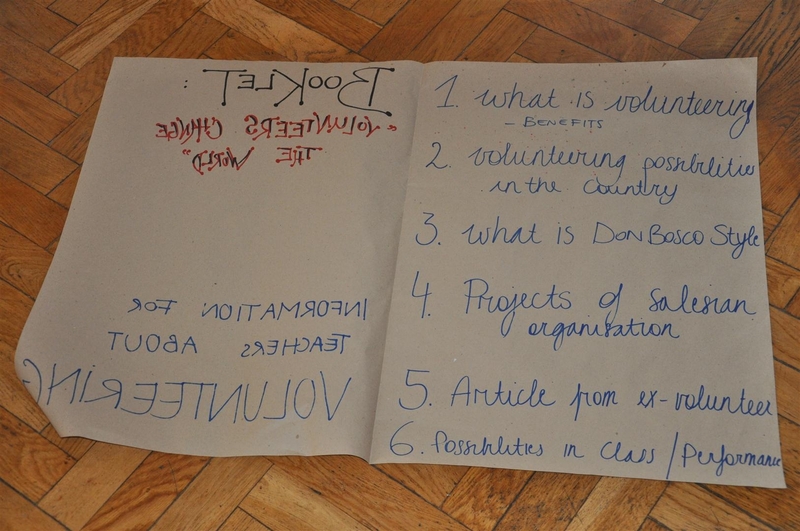 BOOKLET:
"VOLUNTEERS CHANGE
THE WORLD"
INFORMATION FOR
TEACHERS ABOUT
VOLUNTEERING
1. what is volunteering
- BENEFITS
2. volunteering possibilities
in the country
3. what is DON BOSCO Style
4. Projects of Salesian
organisation
5. Article from ex-volunteer
6. Possibilities in class / Performance